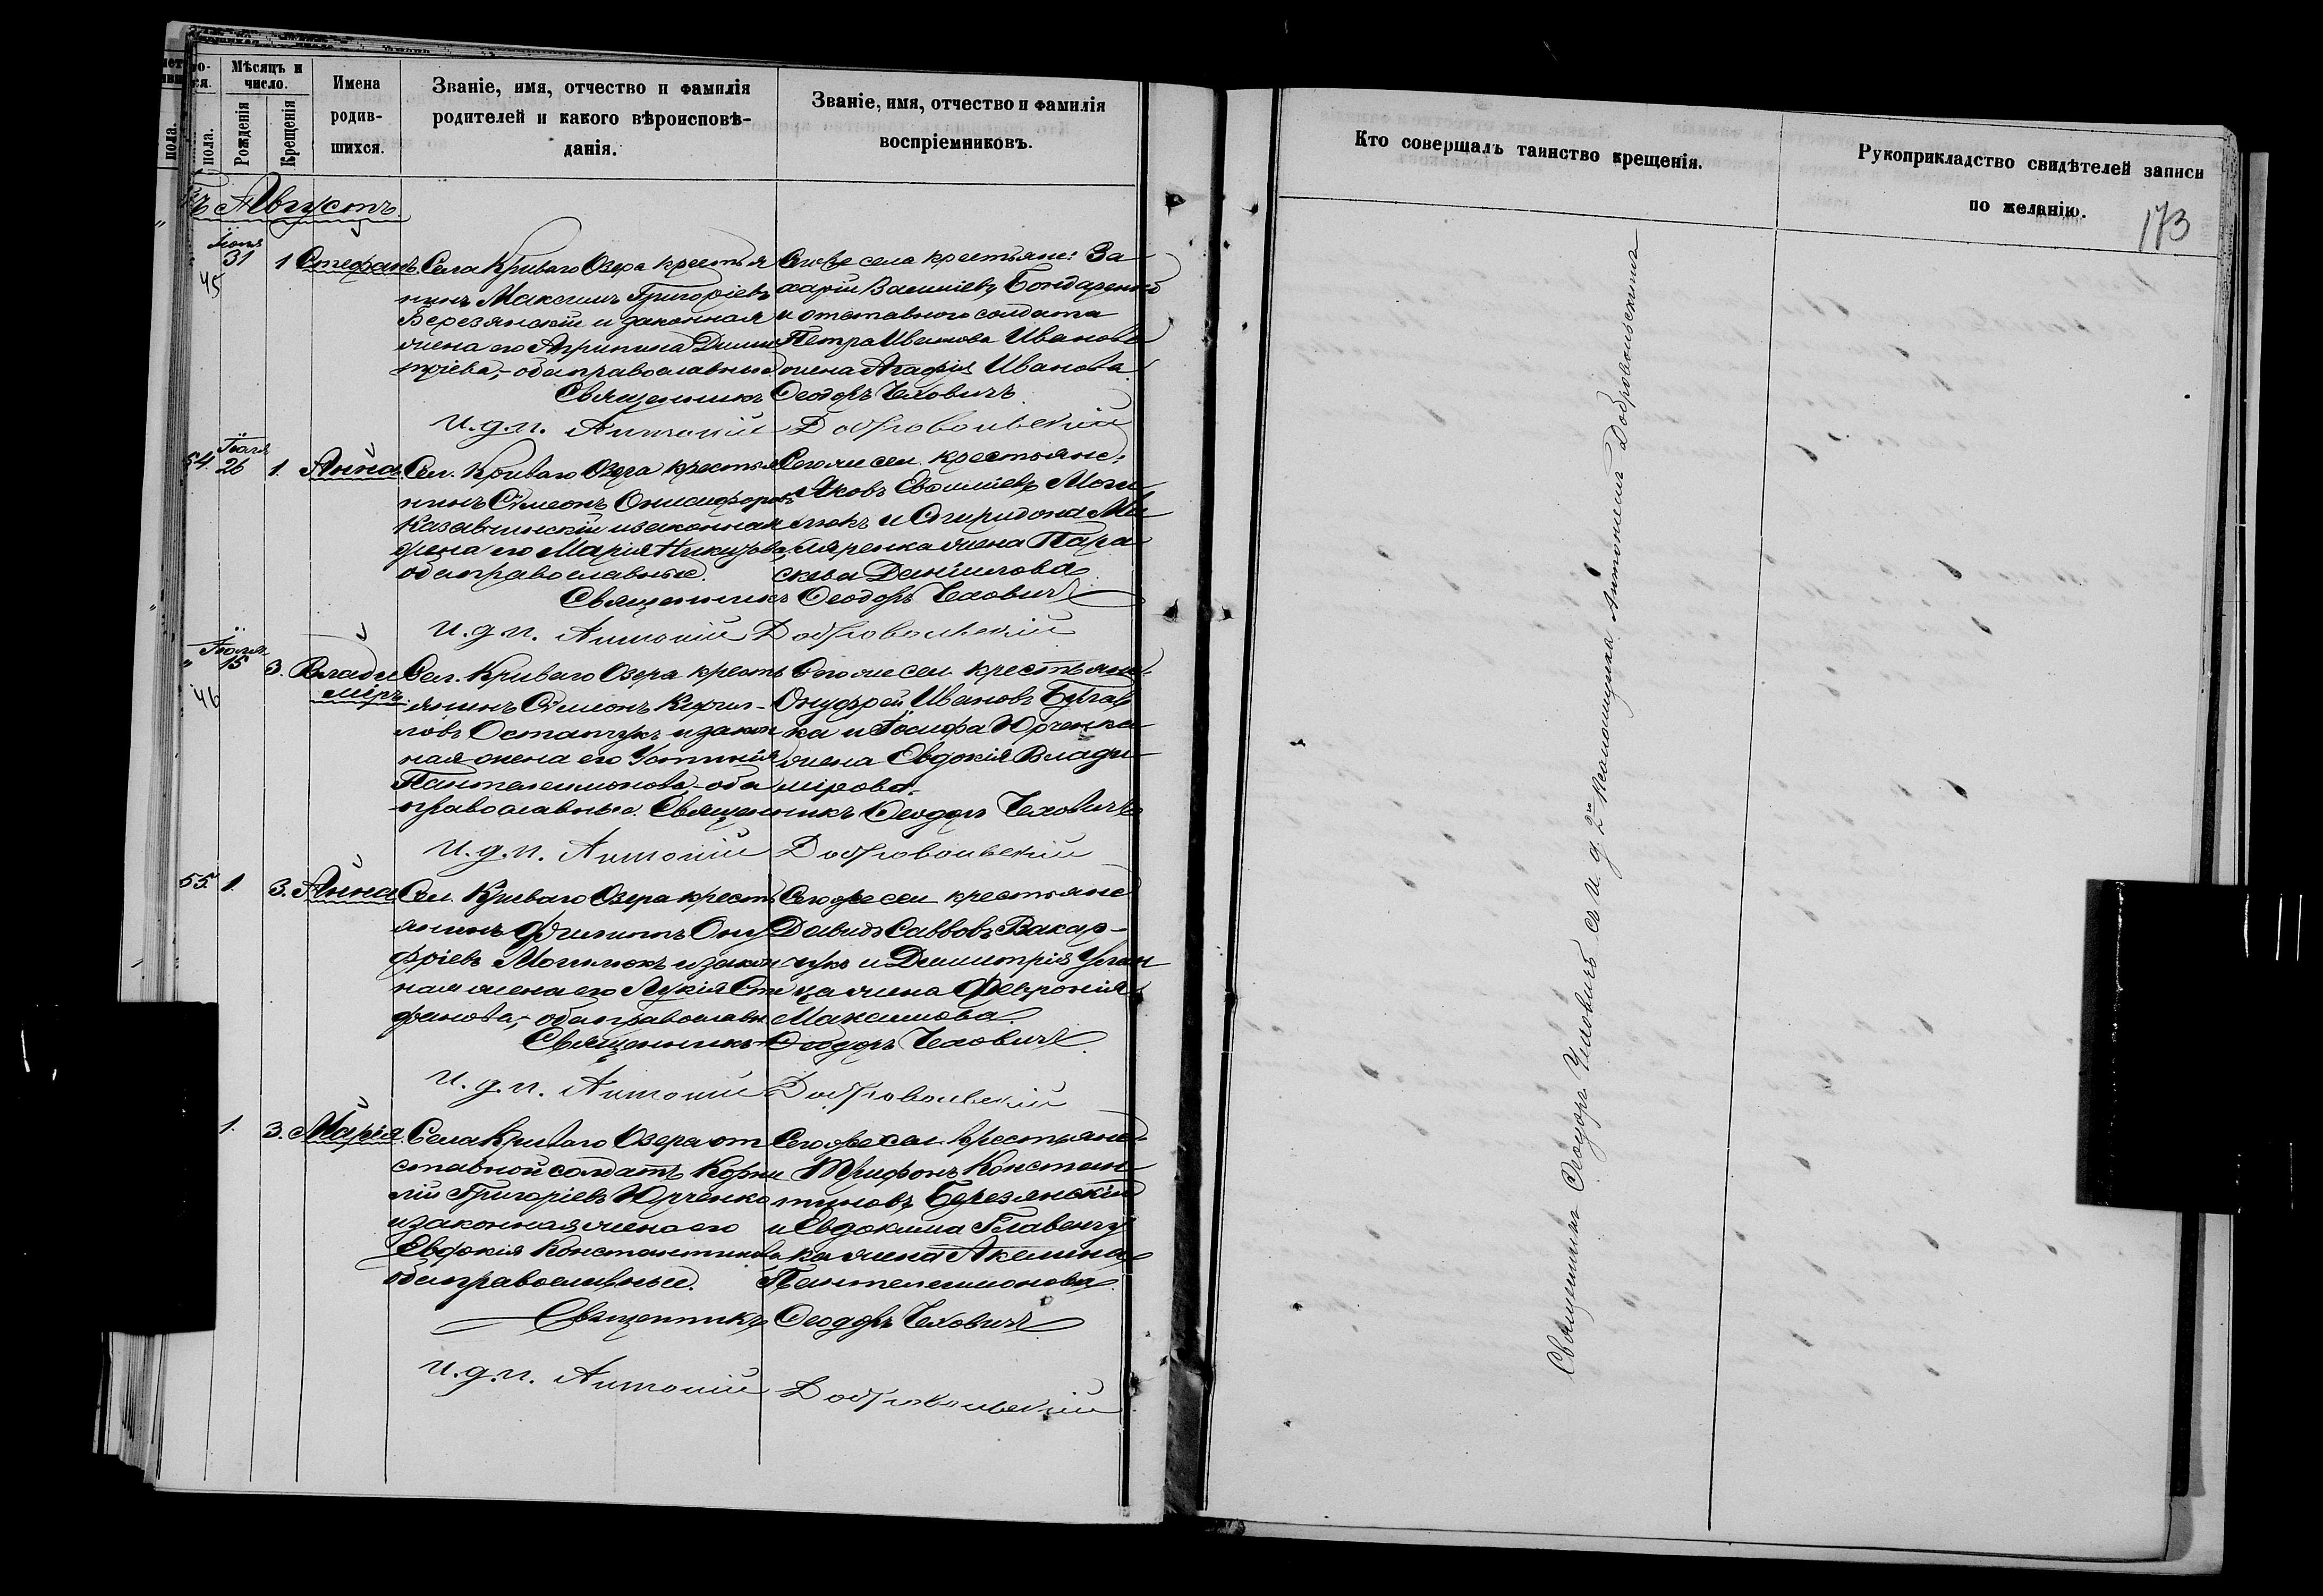 Мѣсяцъ и число.
Рожденія
Крещенія
пола.
пола.
Имена родив-шихся.
Званіе, имя, отчество и фамилія
родителей и какого вѣроисповѣ-
данія.
Званіе, имя, отчество и фамилія
воспріемниковъ.
Кто совершалъ таинство крещенія.
Рукоприкладство свидѣтелей записи
по желанію.
173
Августъ
45
Іюля 31 1 Стефанъ
Села Криваго Озера крестья
нинъ Максимъ Григоріевъ
Березянскій и законная
жена его Агрипина Дими
тріева, оба православные
Того же села крестьяне: За
харій Василіевъ Бондаренко
и отставного солдата
Петра Иванова Иванова
жена Агафія Иванова.
Священникъ Ѳеодоръ Чеховичъ
И. д. п. Антоній Добровольскій
54. Іюля 26 1. Анна
Сел. Криваго Озера крестья
нинъ Сѵмеонъ Онисифоровъ
Казавчинскій и законная
жена его Марія Никитова,
оба православные.
Того же сел. крестьяне:
Яковъ Евфиміевъ Моги
люкъ и Спиридона Ма
ляренка жена Пара
скева Даніилова
Священникъ Ѳеодоръ Чеховичъ
И. д. п. Антоній Добровольскій
46
Іюля 15 3. Влади
міръ
Сел. Криваго Озера кресть
янинъ Сѵмеонъ Кирил-
ловъ Остапчукъ и закон
ная жена его Устинія
Пантелеимонова, оба
православные.
Того же сел. крестьяне:
Онуфрій Ивановъ
ка и Іосифа Юрченка
жена Евдокія Влади-
мірова.
Священникъ Ѳеодоръ Чеховичъ
И. д. п. Антоній Добровольскій
55. 1. 3. Анна
Сел. Криваго Озера кресть
янинъ Филиппъ Ону
фріевъ Могилюкъ и закон
ная жена его Лукія Сте
фанова, оба православн.
Того же сел. крестьяне
Давидъ Саввовъ Вакар-
чукъ и Димитрія
жена Февронія
Максимова.
Священникъ Ѳеодоръ Чеховичъ
И. д. п. Антоній Добровольскій
1. 3. Марія
Села Криваго Озера от
ставной солдатъ Корни
лій Григоріевъ Юрченко
и законная жена его
Евдокія Константинова
оба православные.
Того же сел. крестьяне
Трифонъ Констан
тиновъ Березянскій
и Евдокима Главенчу
ка жена Акелина
Пантелеимонова.
Священникъ Ѳеодоръ Чеховичъ
И. д. п. Антоній Добровольскій
Священникъ Ѳеодоръ Чеховичъ съ и. д. 2го псаломщика Антоніемъ Добровольскимъ